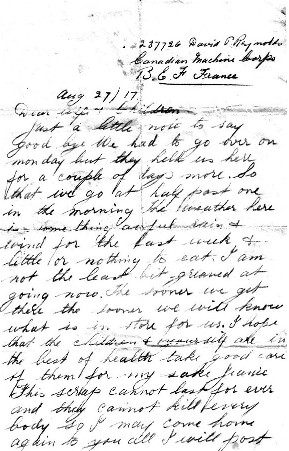 237726 David P Reynolds
Canadian Machine Corps
B. E. F France
Aug 27/17
Dear wife & children
Just a little note to say
good bye We had to go over on
monday but they held us here
for a couple of days more. So
that we go at half past one
in the morning the weather here
is something awful rain &
wind for the last week &
little or nothing to eat. I am
not the least bit greaved at
going now. The sooner we get
there the sooner we will know
what is in store for us. I hope
that the children & yourself are in
the best of health take good care
of them for my sake
This scrap cannot last for ever
and they cannot kill every
body So I may come home
again to you all I will post